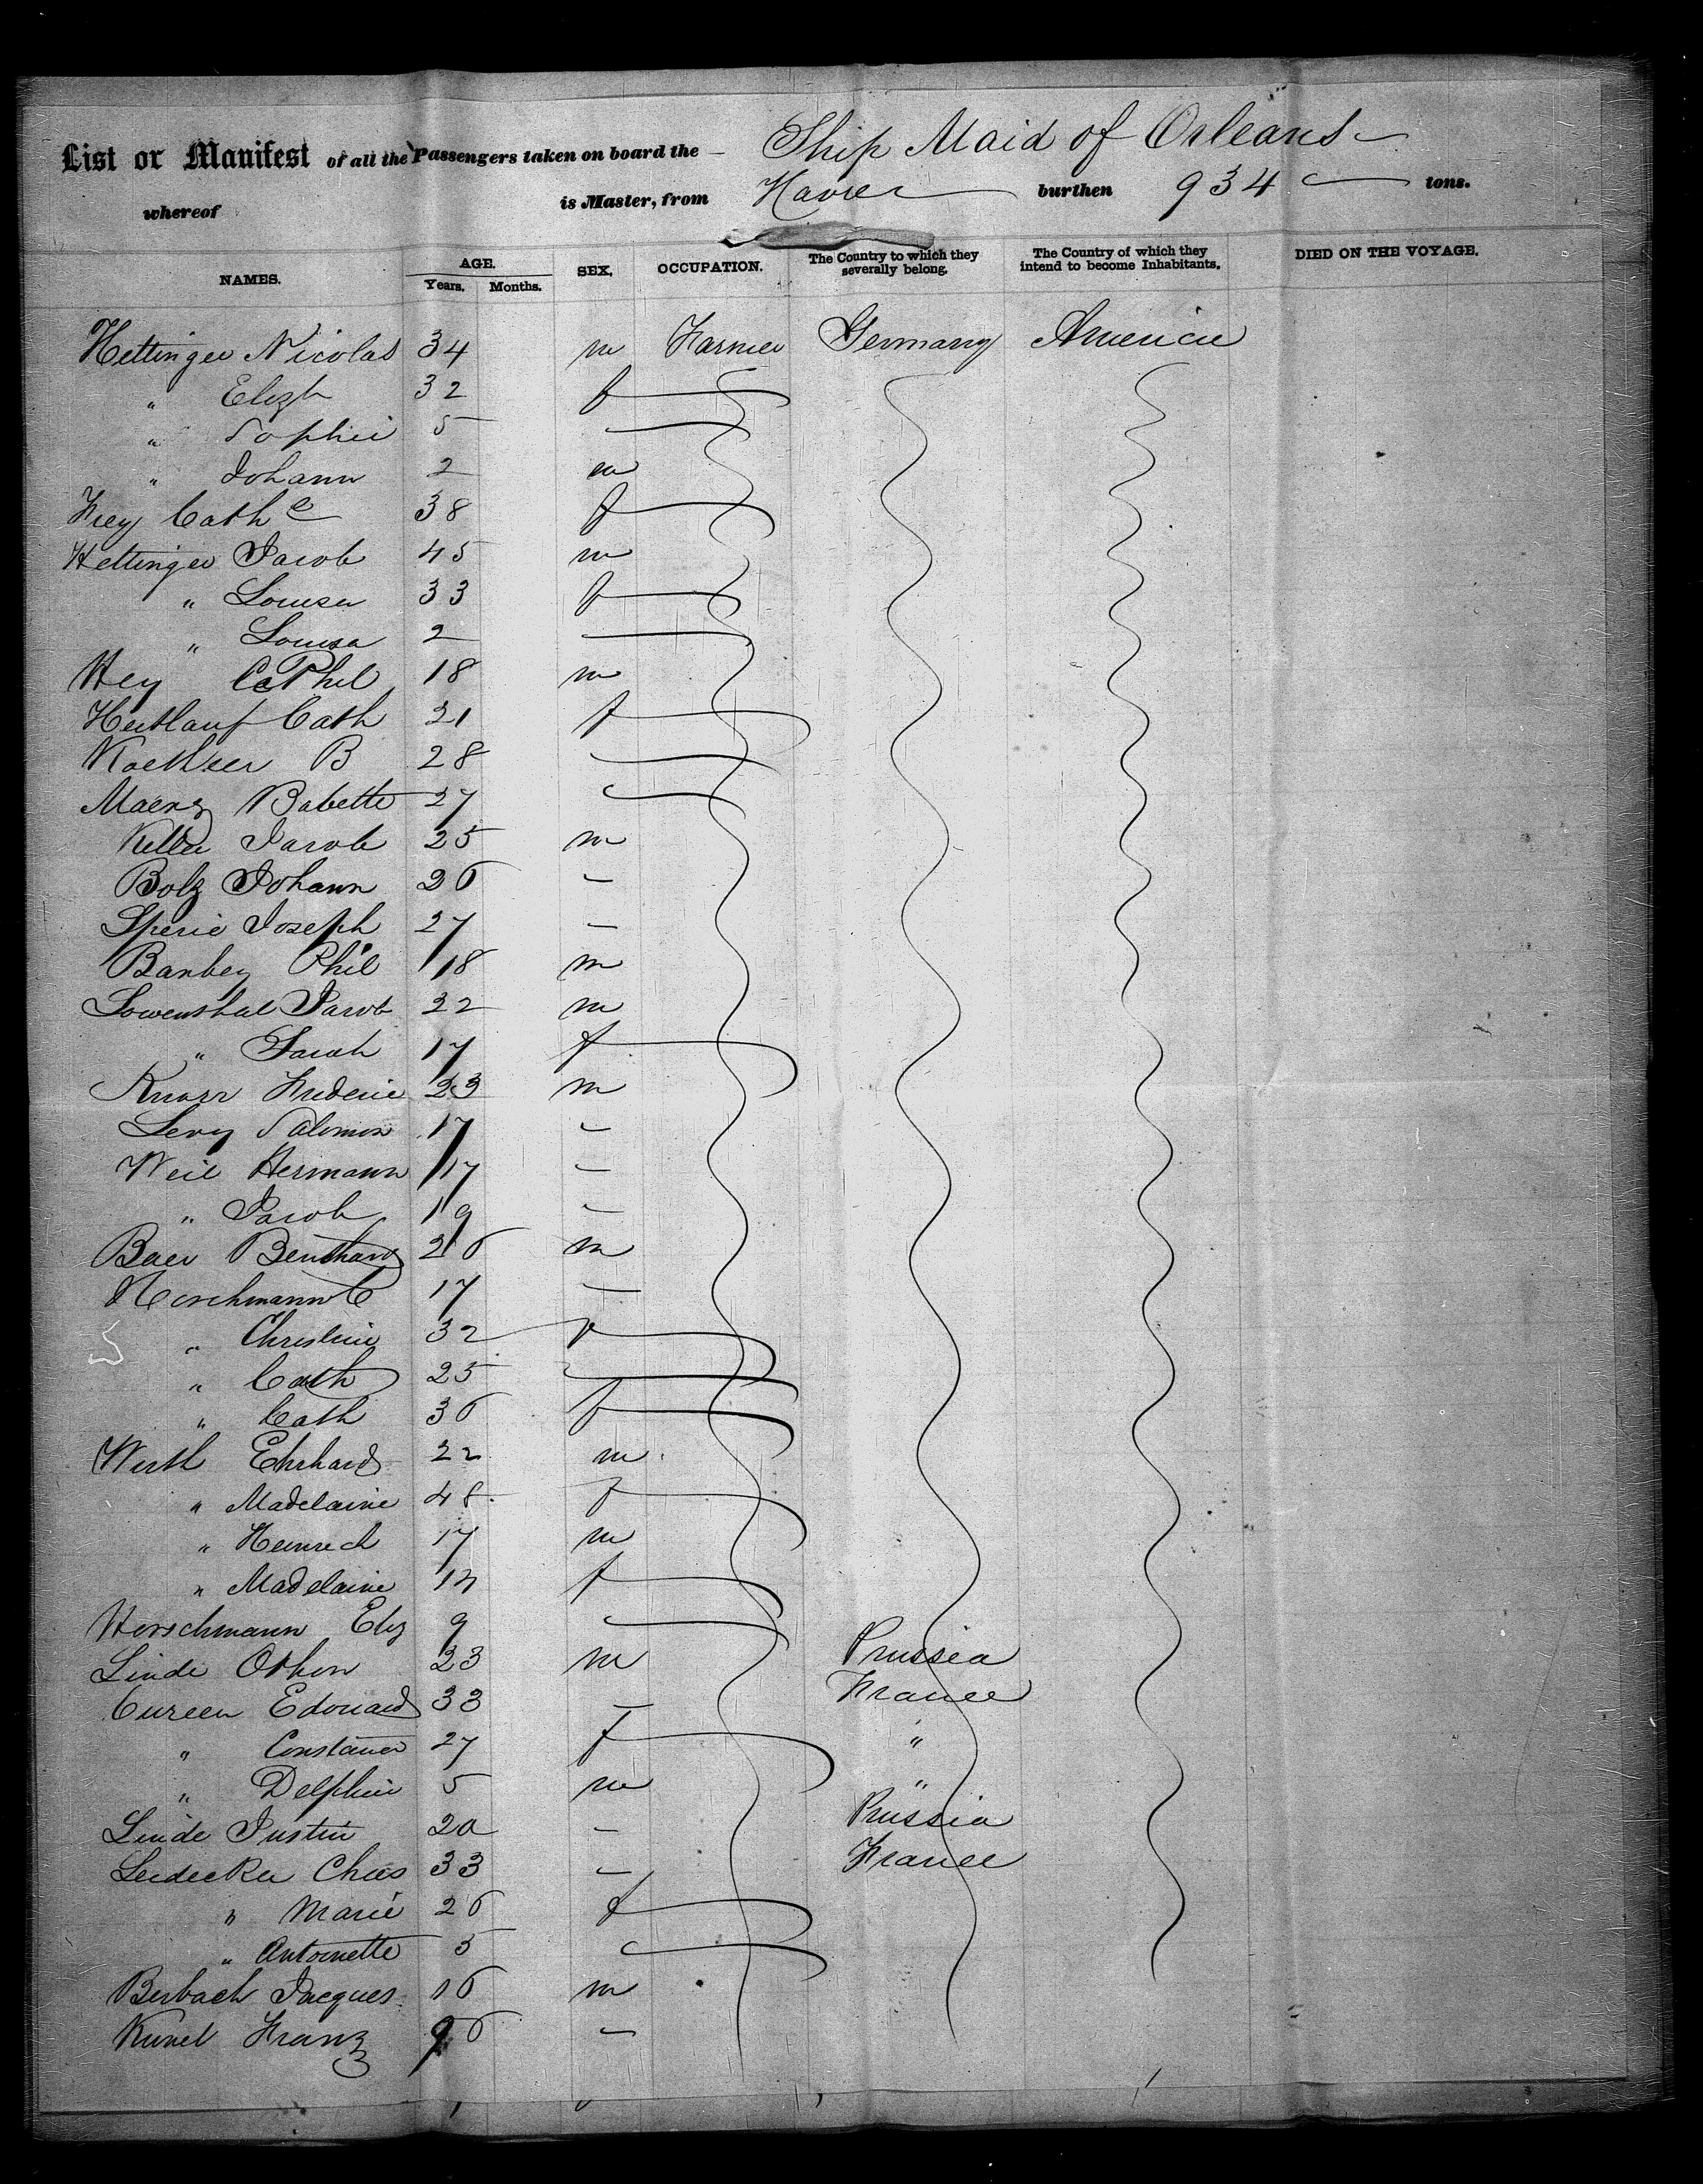 List or Manifest of all the Passengers taken on board the Ship Maid of Orleans
whereof is Master, from Havre burthen 934 tons.
NAMES. AGE. Years. Months. SEX. OCCUPATION. The Country to which they severally belong. The Country of which they intend to become Inhabitants. DIED ON THE VOYAGE.
Hettinger Nicolas 34 m Farmer Germany America
" Elizh 32 f
" Sophie 5
" Johann 2 m
Frey Cathe 38 f
Hettinger Jacob 45 m
" Louisa 33 f
" Louisa 2
Hey Phil 18 m
Heitlauf Cath 21 f
B 28
Maerz Babette 27
Keller Jacob 25 m
Bolz Johann 26 –
Sperie Joseph 27 –
Banbey Phil 18 m
Lowenthal Jacob 22 m
" Sarah 17 f
Knorr Frederic 23 m
Levy Salomon 17 –
Weil Hermann 17 –
" Jacob 19 –
Baer Bernhard 26 m
Horschmann C 17 –
" Christine 32 f
" Cath 25
" Cath 36 f
Wirth Ehrhard 22 m
" Madelaine 48 f
" Heinrich 17 m
" Madelaine 14 f
Horschmann Eliz 9
Linde Othon 23 m Prussia
Cureen Edouard 33 – France
" Constance 27 f "
" Delphin 5 m "
Linde Justin 20 – Prussia
Leidecker Chas 33 – France
" Marie 26 f
" Antoinette 5
Berbach Jacques 16 m
Kunel Franz 96 –